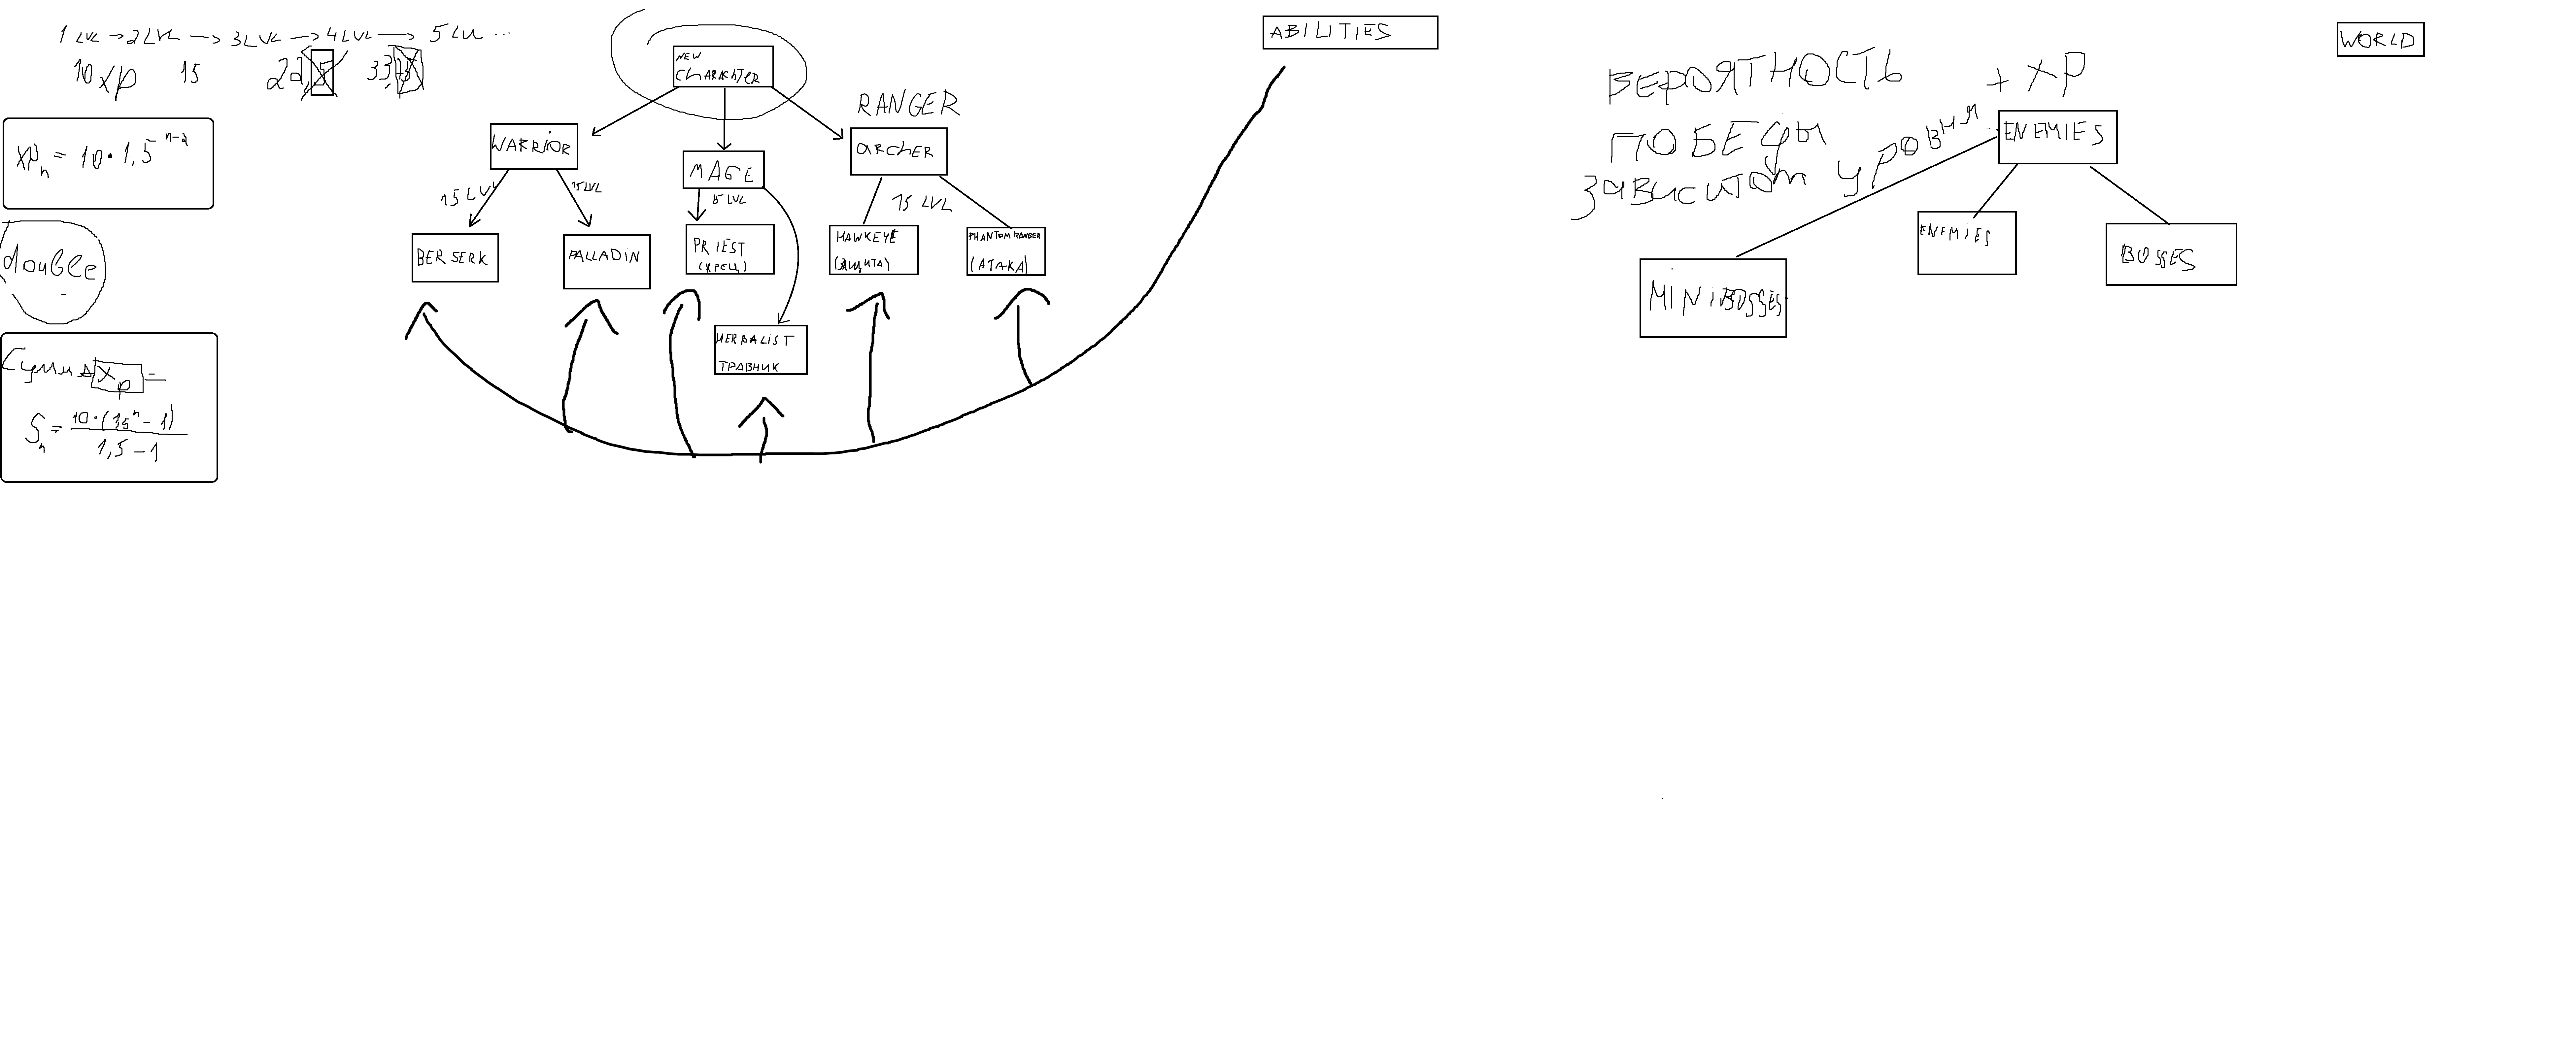 1 LVL → 2 LVL → 3 LVL → 4 LVL → 5 LVL ...
10 xp 15 22,5 33,75
xp n = 10 · 1,5 n-2
double
Сумма xp =
S n = 10·(1,5 n - 1)
1,5 - 1
NEW
CHARACHTER
WARRIOR
MAGE
RANGER
ARCHER
15 LVL
15 LVL
15 LVL
15 LVL
BERSERK
PALLADIN
PRIEST
(ЖРЕЦ)
HERBALIST
ТРАВНИК
HAWKEYE
(ЗАЩИТА)
PHANTOM RANGER
(АТАКА)
ABILITIES
ВЕРОЯТНОСТЬ
ПОБЕДЫ
ЗАВИСИТ ОТ УРОВНЯ
+ XP
ENEMIES
MINIBOSSES
ENEMIES
BOSSES
WORLD